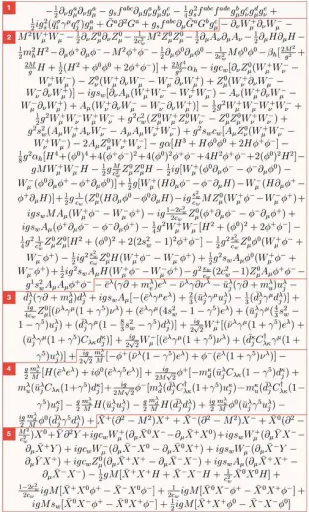 1
-½∂_νg^a_μ∂_νg^a_μ − g_s f^{abc}∂_μg^a_νg^b_μg^c_ν − ¼g²_s f^{abc}f^{ade}g^b_μg^c_νg^d_μg^e_ν +
½ig²_s(q̄^σ_iγ^μq^σ_j)g^a_μ + Ḡ^a∂²G^a + g_s f^{abc}∂_μḠ^aG^bg^c_μ] − ∂_νW⁺_μ∂_νW⁻_μ −
2
M²W⁺_μW⁻_μ − ½∂_νZ⁰_μ∂_νZ⁰_μ − 1/(2c²_w) M²Z⁰_μZ⁰_μ − ½∂_μA_ν∂_μA_ν − ½∂_μH∂_μH −
½m²_hH² − ∂_μφ⁺∂_μφ⁻ − M²φ⁺φ⁻ − ½∂_μφ⁰∂_μφ⁰ − 1/(2c²_w) Mφ⁰φ⁰ − β_h[2M²/g² +
2M/g H + ½(H² + φ⁰φ⁰ + 2φ⁺φ⁻)] + 2M⁴/g² α_h − igc_w[∂_νZ⁰_μ(W⁺_μW⁻_ν −
W⁺_νW⁻_μ) − Z⁰_ν(W⁺_μ∂_νW⁻_μ − W⁻_μ∂_νW⁺_μ) + Z⁰_μ(W⁺_ν∂_νW⁻_μ −
W⁻_ν∂_νW⁺_μ)] − igs_w[∂_νA_μ(W⁺_μW⁻_ν − W⁺_νW⁻_μ) − A_ν(W⁺_μ∂_νW⁻_μ −
W⁻_μ∂_νW⁺_μ) + A_μ(W⁺_ν∂_νW⁻_μ − W⁻_ν∂_νW⁺_μ)] − ½g²W⁺_μW⁻_μW⁺_νW⁻_ν +
½g²W⁺_μW⁻_νW⁺_μW⁻_ν + g²c²_w(Z⁰_μW⁺_μZ⁰_νW⁻_ν − Z⁰_μZ⁰_μW⁺_νW⁻_ν) +
g²s²_w(A_μW⁺_μA_νW⁻_ν − A_μA_μW⁺_νW⁻_ν) + g²s_wc_w[A_μZ⁰_ν(W⁺_μW⁻_ν −
W⁺_νW⁻_μ) − 2A_μZ⁰_μW⁺_νW⁻_ν] − gα[H³ + Hφ⁰φ⁰ + 2Hφ⁺φ⁻] −
⅛g²α_h[H⁴+(φ⁰)⁴+4(φ⁺φ⁻)²+4(φ⁰)²φ⁺φ⁻+4H²φ⁺φ⁻+2(φ⁰)²H²] −
gMW⁺_μW⁻_μH − ½g M/c²_w Z⁰_μZ⁰_μH − ½ig[W⁺_μ(φ⁰∂_μφ⁻ − φ⁻∂_μφ⁰) −
W⁻_μ(φ⁰∂_μφ⁺ − φ⁺∂_μφ⁰)] + ½g[W⁺_μ(H∂_μφ⁻ − φ⁻∂_μH) − W⁻_μ(H∂_μφ⁺ −
φ⁺∂_μH)] + ½g 1/c_w (Z⁰_μ(H∂_μφ⁰ − φ⁰∂_μH) − ig s²_w/c_w MZ⁰_μ(W⁺_μφ⁻ − W⁻_μφ⁺) +
igs_wMA_μ(W⁺_μφ⁻ − W⁻_μφ⁺) − ig (1−2c²_w)/(2c_w) Z⁰_μ(φ⁺∂_μφ⁻ − φ⁻∂_μφ⁺) +
igs_wA_μ(φ⁺∂_μφ⁻ − φ⁻∂_μφ⁺) − ¼g²W⁺_μW⁻_μ[H² + (φ⁰)² + 2φ⁺φ⁻] −
¼g² 1/c²_w Z⁰_μZ⁰_μ[H² + (φ⁰)² + 2(2s²_w − 1)²φ⁺φ⁻] − ½g² s²_w/c_w Z⁰_μφ⁰(W⁺_μφ⁻ +
W⁻_μφ⁺) − ½ig² s²_w/c_w Z⁰_μH(W⁺_μφ⁻ − W⁻_μφ⁺) + ½g²s_wA_μφ⁰(W⁺_μφ⁻ +
W⁻_μφ⁺) + ½ig²s_wA_μH(W⁺_μφ⁻ − W⁻_μφ⁺) − g² s_w/c_w (2c²_w − 1)Z⁰_μA_μφ⁺φ⁻ −
g¹s²_wA_μA_μφ⁺φ⁻ − ē^λ(γ∂ + m^λ_e)e^λ − ν̄^λγ∂ν^λ − ū^λ_j(γ∂ + m^λ_u)u^λ_j −
3
d̄^λ_j(γ∂ + m^λ_d)d^λ_j + igs_wA_μ[−(ē^λγ^μe^λ) + ⅔(ū^λ_jγ^μu^λ_j) − ⅓(d̄^λ_jγ^μd^λ_j)] +
ig/(4c_w) Z⁰_μ[(ν̄^λγ^μ(1 + γ⁵)ν^λ) + (ē^λγ^μ(4s²_w − 1 − γ⁵)e^λ) + (ū^λ_jγ^μ(4/3 s²_w −
1 − γ⁵)u^λ_j) + (d̄^λ_jγ^μ(1 − 8/3 s²_w − γ⁵)d^λ_j)] + ig/(2√2) W⁺_μ[(ν̄^λγ^μ(1 + γ⁵)e^λ) +
(ū^λ_jγ^μ(1 + γ⁵)C_{λκ}d^κ_j)] + ig/(2√2) W⁻_μ[(ē^λγ^μ(1 + γ⁵)ν^λ) + (d̄^κ_jC†_{λκ}γ^μ(1 +
γ⁵)u^λ_j)] + ig/(2√2) m^λ_e/M [−φ⁺(ν̄^λ(1 − γ⁵)e^λ) + φ⁻(ē^λ(1 + γ⁵)ν^λ)] −
4
g/2 m^λ_e/M [H(ē^λe^λ) + iφ⁰(ē^λγ⁵e^λ)] + ig/(2M√2) φ⁺[−m^κ_d(ū^λ_jC_{λκ}(1 − γ⁵)d^κ_j) +
m^λ_u(ū^λ_jC_{λκ}(1 + γ⁵)d^κ_j] + ig/(2M√2) φ⁻[m^λ_d(d̄^λ_jC†_{λκ}(1 + γ⁵)u^κ_j) − m^κ_u(d̄^λ_jC†_{λκ}(1 −
γ⁵)u^κ_j] − g/2 m^λ_u/M H(ū^λ_ju^λ_j) − g/2 m^λ_d/M H(d̄^λ_jd^λ_j) + ig/2 m^λ_u/M φ⁰(ū^λ_jγ⁵u^λ_j) −
ig/2 m^λ_d/M φ⁰(d̄^λ_jγ⁵d^λ_j) + X̄⁺(∂² − M²)X⁺ + X̄⁻(∂² − M²)X⁻ + X̄⁰(∂² −
5
M²/c²_w)X⁰ + Ȳ∂²Y + igc_wW⁺_μ(∂_μX̄⁰X⁻ − ∂_μX̄⁺X⁰) + igs_wW⁺_μ(∂_μȲX⁻ −
∂_μX̄⁺Y) + igc_wW⁻_μ(∂_μX̄⁻X⁰ − ∂_μX̄⁰X⁺) + igs_wW⁻_μ(∂_μX̄⁻Y −
∂_μȲX⁺) + igc_wZ⁰_μ(∂_μX̄⁺X⁺ − ∂_μX̄⁻X⁻) + igs_wA_μ(∂_μX̄⁺X⁺ −
∂_μX̄⁻X⁻) − ½gM[X̄⁺X⁺H + X̄⁻X⁻H + 1/c²_w X̄⁰X⁰H] +
(1−2c²_w)/(2c_w) igM[X̄⁺X⁰φ⁺ − X̄⁻X⁰φ⁻] + 1/(2c_w) igM[X̄⁰X⁻φ⁺ − X̄⁰X⁺φ⁻] +
igMs_w[X̄⁰X⁻φ⁺ − X̄⁰X⁺φ⁻] + ½igM[X̄⁺X⁺φ⁰ − X̄⁻X⁻φ⁰]